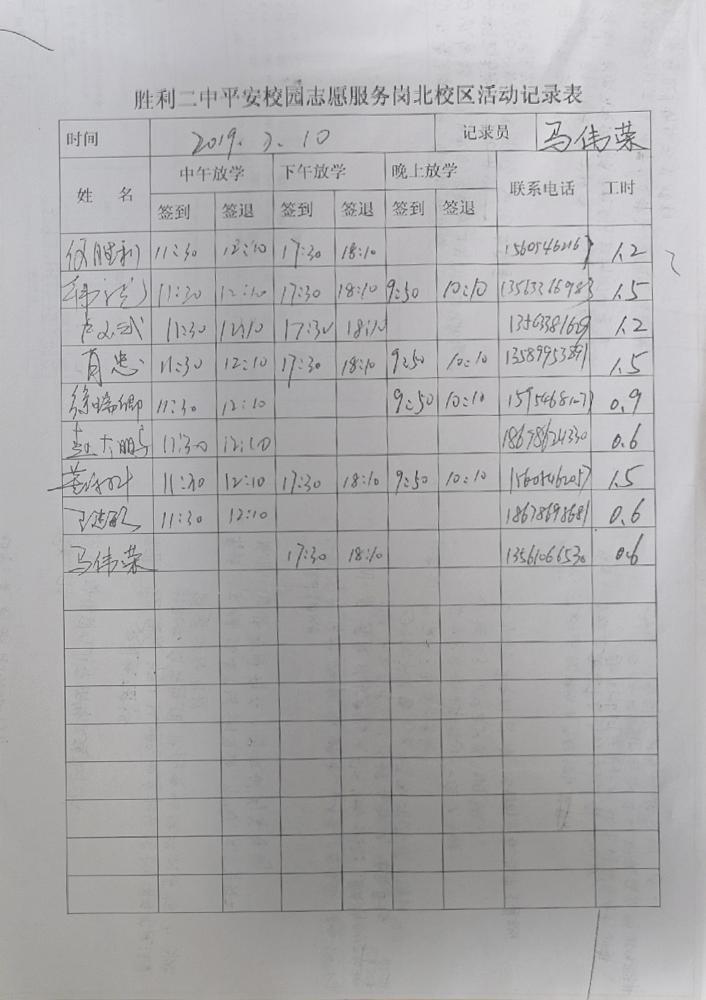 胜利二中平安校园志愿服务岗北校区活动记录表
时间 2019. 3. 10 记录员 马伟荣
姓 名 中午放学 下午放学 晚上放学 联系电话 工时
签到 签退 签到 签退 签到 签退
胜利 11:30 12:10 17:30 18:10 1.2
11:30 12:10 17:30 18:10 9:50 10:10 1.5
11:30 12:10 17:30 18:10 1.2
肖忠 11:30 12:10 17:30 18:10 9:50 10:10 13589953891 1.5
徐 卿 11:30 12:10 9:50 10:10 0.9
大鹏 11:30 12:10 18698624330 0.6
11:30 12:10 17:30 18:10 9:50 10:10 15605462057 1.5
11:30 12:10 18678698681 0.6
马伟荣 17:30 18:10 13561066530 0.6